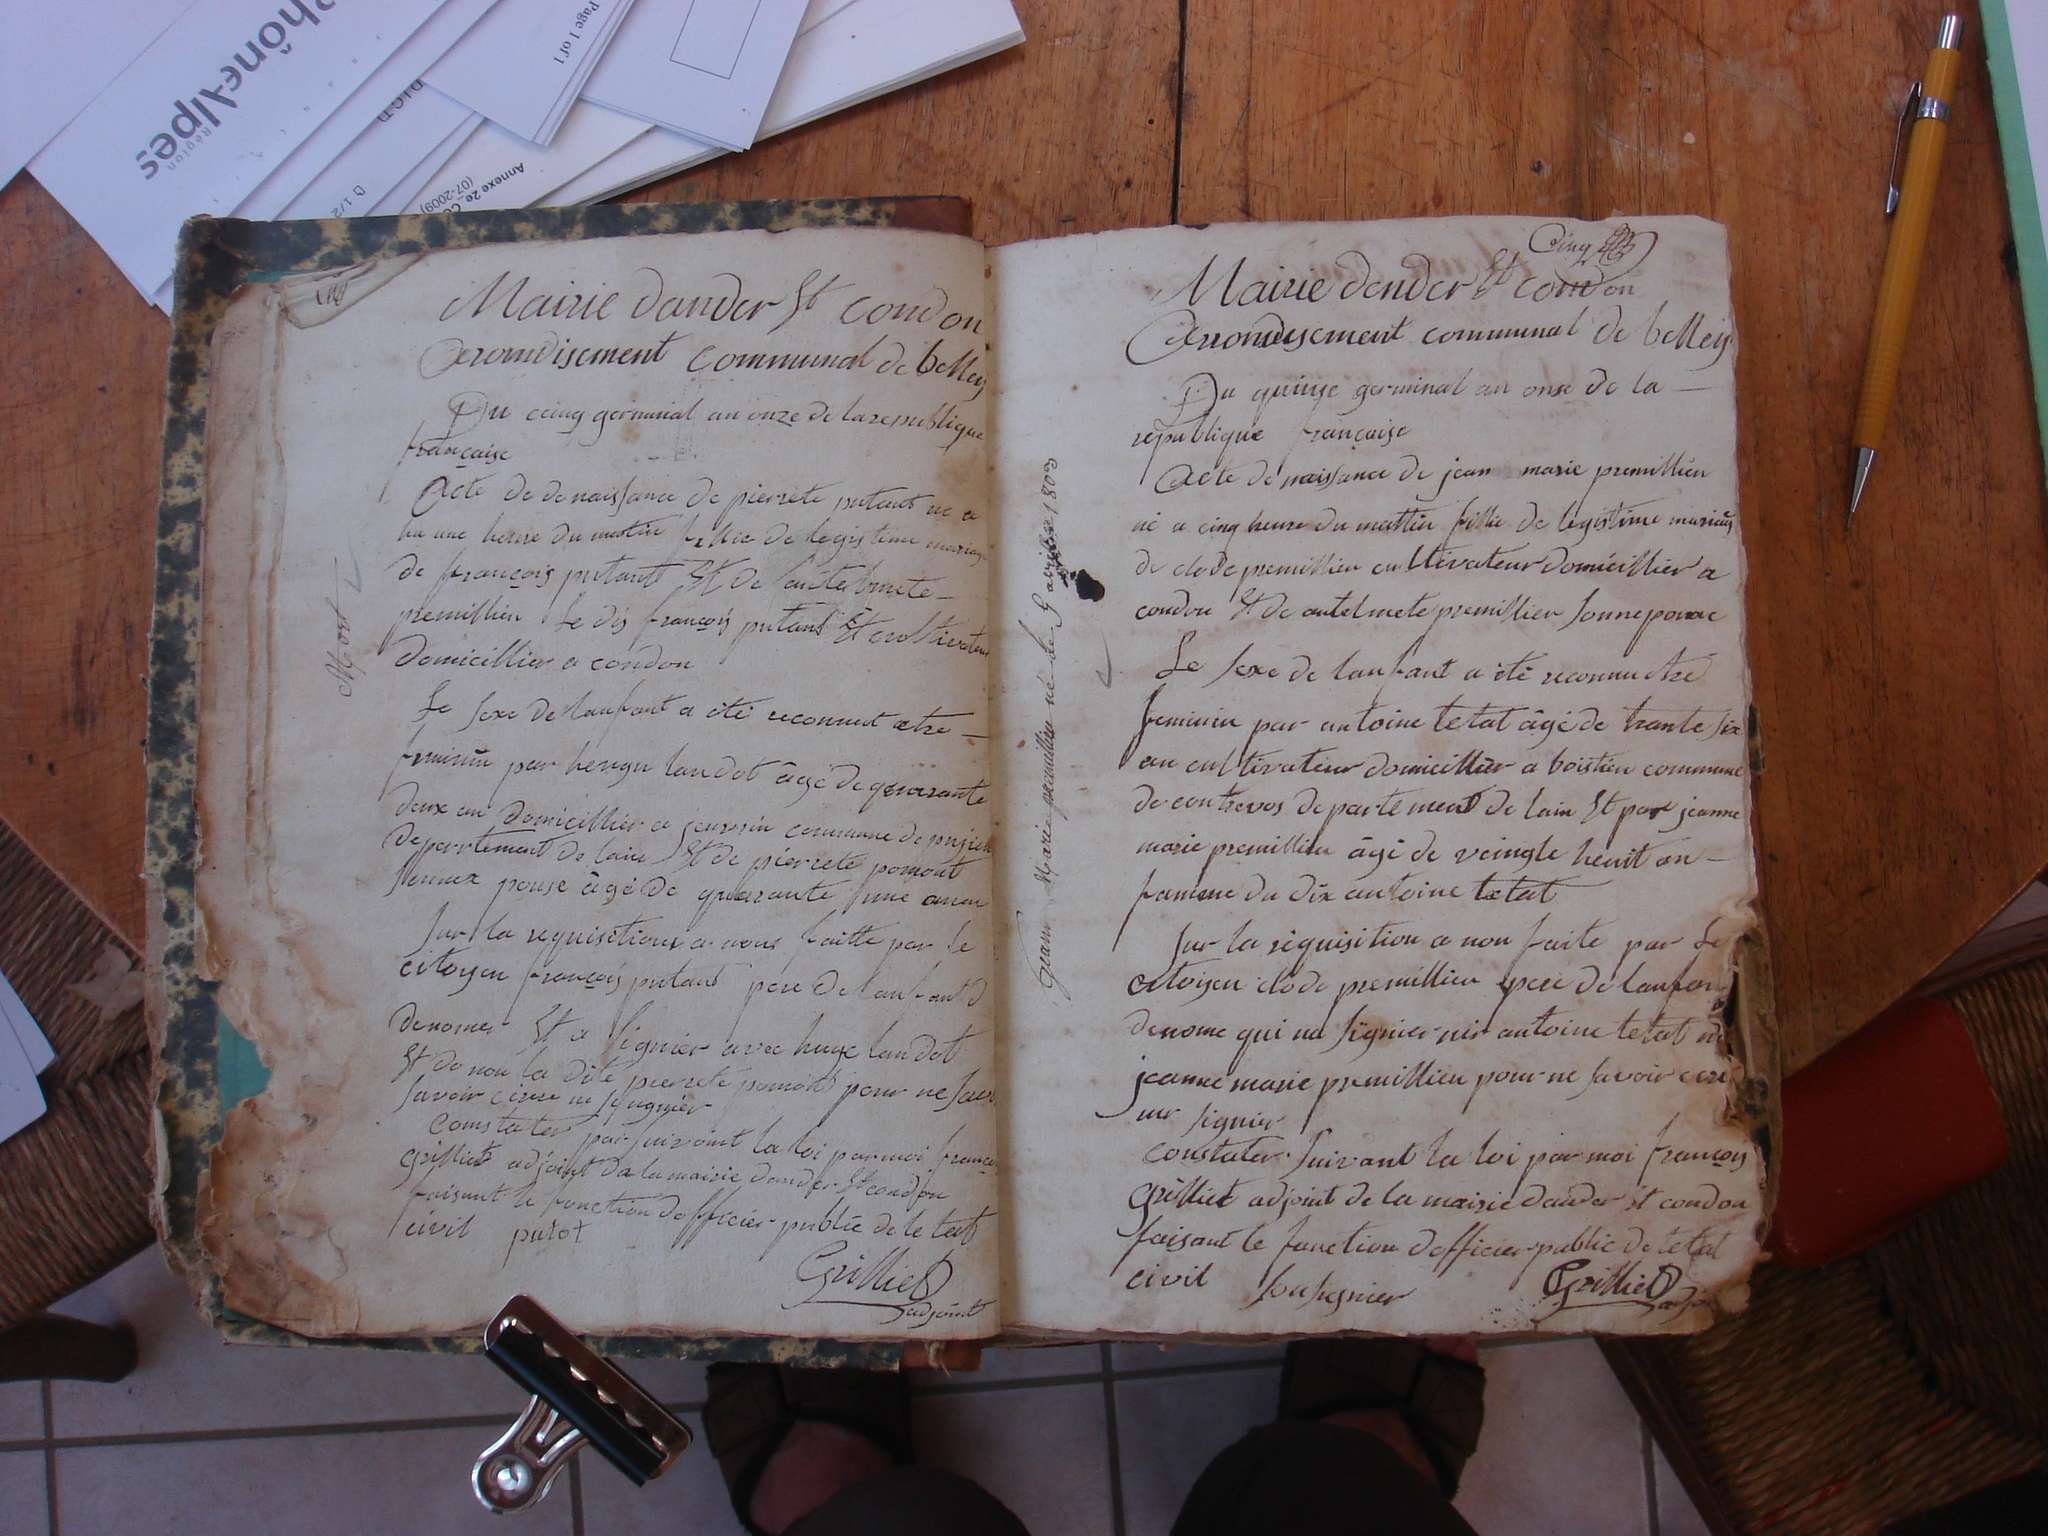 RhôneAlpes
Région
Page 1 of 1
D 1/2
Annexe 2e
(07-2009)
Mairie dander St condon
Arrondisement communal de belley
Du cinq germinal an onze de la republique
française
Acte de de naissance de pierrete putant ne a
hu une heure du matin fillie de legistime mariage
de françois putant St de
premillien Le dis françois putant St cultivateur
domicillier a condon
Mort
Le sexe de lanfant a été reconnut etre
feminin par hevgu landot âgé de quarante
deux an domicillier a commune de pugieu
departement de lain St de pierrete pomont
senaex pouse âgé de quarante une anne
Sur la requisition a nous faitte par le
citoyen françois putant pere de lanfant
denomer St a signier avec huge landot
St de non la dite pierrete pomont pour ne savoir
savoir ne signier
constater par suivant la loi par moi françois
Grilliet adjoint de la mairie dander St condon
faisant le fonction dofficier public de le tat
civil putot
Grilliet
adjoint
Cinq
Mairie dander St condon
Arrondisement communal de belley
Du quinze germinal an onse de la
republique française
Acte de naissance de jean marie premillieu
né a cinq heure du mattin fillie de legistime mariage
de clode premillieu cultivateur domicillier a
condon St de antelmete premillier sonne
Jeanne Marie premillieu né le 5 avril 1803
Le sexe de lanfant a été reconnu etre
feminin par antoine tetat âgé de trante six
an cultivateur domicillier a boistieu commune
de contrevos departement de lain St par jeanne
marie premillieu âgé de veingte heuit an
famme du dix antoine tetat
Sur la requisition a non faite par le
citoyen clode premillieu pere de lanfan
denome qui na signier nis antoine tetat ni
jeanne marie premillieu pour ne savoir ecri
nis signier
constater suivant la loi par moi françois
Grilliet adjoint de la mairie dander St condon
faisant le fonction dofficier public de letat
civil sousignier
Grilliet